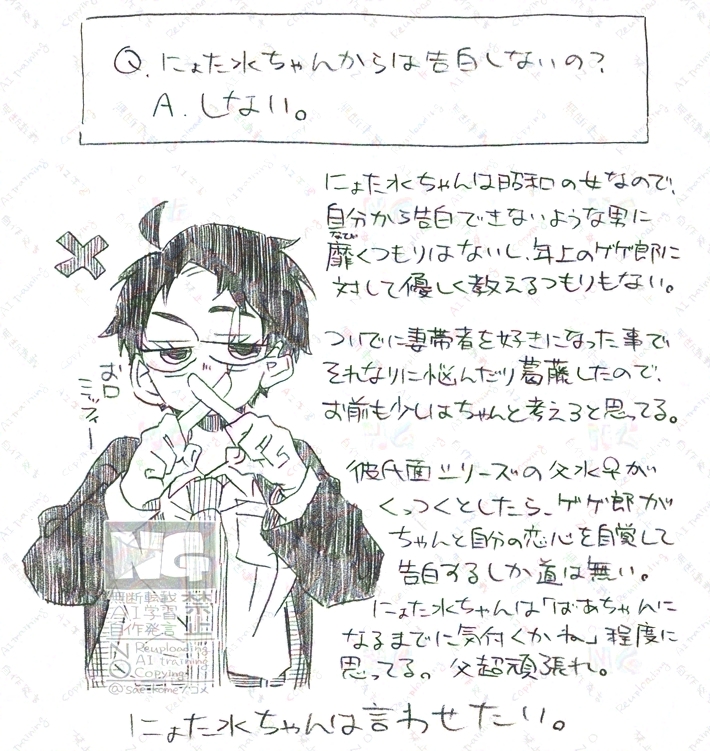 Q. にょた水ちゃんからは告白しないの?
A. しない。
にょた水ちゃんは昭和の女なので、
自分から告白できないような男に
靡くつもりはないし、年上のゲゲ郎に
なび
対して優しく教えるつもりもない。
ついでに妻帯者を好きになった事で
それなりに悩んだり葛藤したので、
お前も少しはちゃんと考えろと思ってる。
お口
ミッフィー
彼氏面シリーズの父水♀が
くっつくとしたら、ゲゲ郎が
ちゃんと自分の恋心を自覚して
告白するしか道は無い。
にょた水ちゃんは「ばあちゃんに
なるまでに気付くかね」程度に
思ってる。父超頑張れ。
にょた水ちゃんは言わせたい。
NG
無断転載
AI学習
自作発言
禁止
NO
Reuploading
AI training
Copying